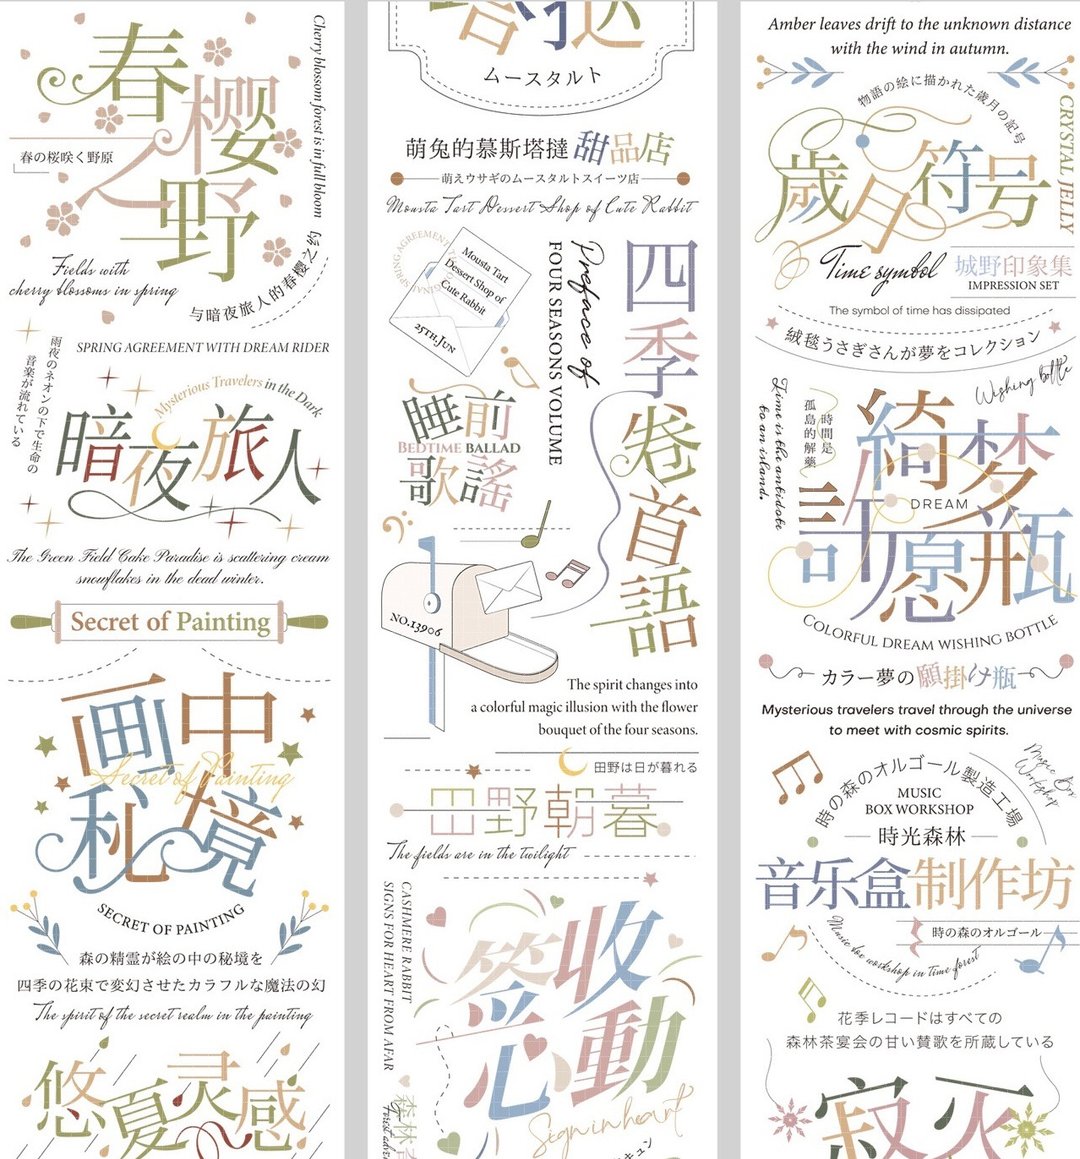 春樱之野
Cherry blossom forest is in full bloom
春の桜咲く野原
Fields with
cherry blossoms in spring
与暗夜旅人的春樱之约
SPRING AGREEMENT WITH DREAM RIDER
雨夜のネオンの下で生命の
音楽が流れている
Mysterious Travelers in the Dark
暗夜旅人
The Green Field Cake Paradise is scattering cream
snowflakes in the dead winter.
Secret of Painting
画中
Secret of Painting
秘境
SECRET OF PAINTING
森の精霊が絵の中の秘境を
四季の花束で変幻させたカラフルな魔法の幻
The spirit of the secret realm in the painting
悠夏灵感
ムースタルト
萌兔的慕斯塔撻甜品店
萌えウサギのムースタルトスイーツ店
Mousta Tart Dessert Shop of Cute Rabbit
Mousta Tart
Dessert Shop of
Cute Rabbit
25TH.JUN
Preface of
FOUR SEASONS VOLUME
四季卷首語
睡前
BEDTIME BALLAD
歌謠
NO.13906
The spirit changes into
a colorful magic illusion with the flower
bouquet of the four seasons.
田野は日が暮れる
田野朝暮
The fields are in the twilight
CASHMERE RABBIT
SIGNS FOR HEART FROM AFAR
签收
心動
Sign in heart
Amber leaves drift to the unknown distance
with the wind in autumn.
物語の絵に描かれた歳月の記号
CRYSTAL JELLY
歲月符号
Time symbol
城野印象集
IMPRESSION SET
The symbol of time has dissipated
絨毯うさぎさんが夢をコレクション
Wishing bottle
Time is the antidote
to an island.
時間是
孤島的解藥
綺梦
DREAM
許愿瓶
COLORFUL DREAM WISHING BOTTLE
カラー夢の願掛け瓶
Mysterious travelers travel through the universe
to meet with cosmic spirits.
時の森のオルゴール製造工場
Magic Box
Workshop
MUSIC
BOX WORKSHOP
時光森林
音乐盒制作坊
時の森のオルゴール
Music box workshop in time forest
花季レコードはすべての
森林茶宴会の甘い賛歌を所蔵している